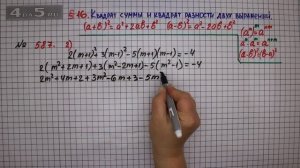 § 16. Квадрат суммы и квадрат разности двух выражений
(a+b)² = a²+2ab+b²   (a-b)² = a²-2ab+b²
№ 587. 2)
2(m+1)²+3(m-1)²-5(m+1)(m-1) = -4
2(m²+2m+1)+3(m²-2m+1)-5(m²-1) = -4
2m²+4m+2+3m²-6m+3-5m